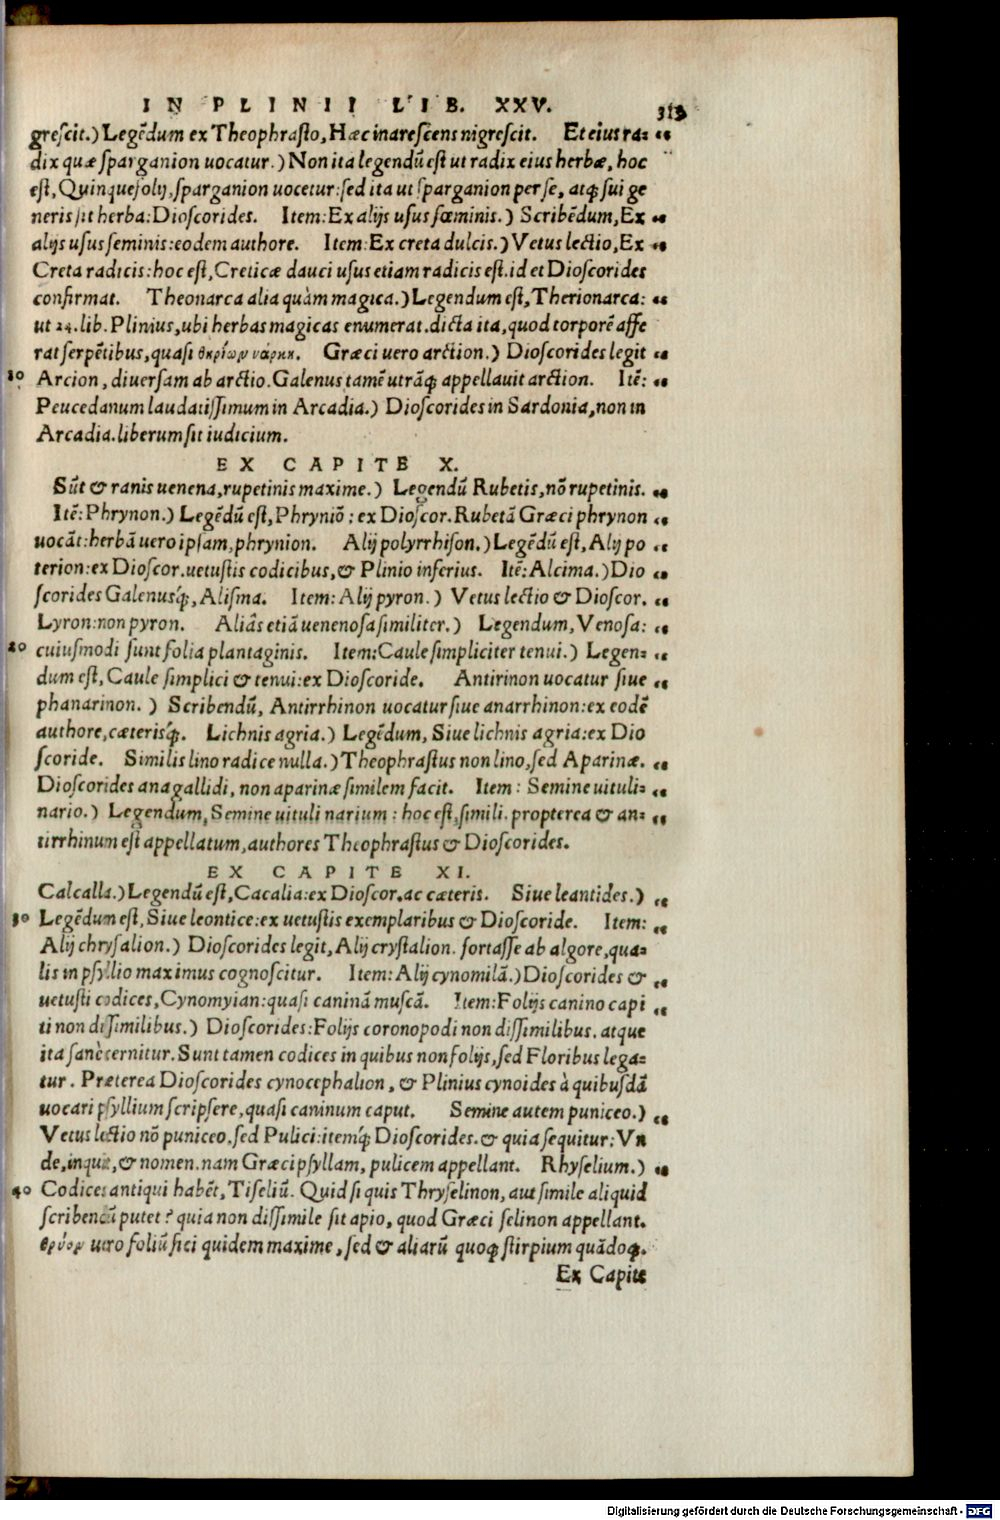 IN PLINII LIB. XXV. 313
grescit.) Legẽdum ex Theophrasto, Hæc inarescens nigrescit. Et eius ra= „
dix quæ sparganion uocatur.) Non ita legendũ est ut radix eius herbæ, hoc
est, Quinquefolij, sparganion uocetur: sed ita ut sparganion per se, atq; sui ge
neris sit herba: Dioscorides. Item: Ex alijs usus fœminis.) Scribẽdum, Ex „
alijs usus seminis: eodem authore. Item: Ex creta dulcis.) Vetus lectio, Ex „
Creta radicis: hoc est, Creticæ dauci usus etiam radicis est. id et Dioscorides
confirmat. Theonarca alia quàm magica.) Legendum est, Therionarca: „
ut 24. lib. Plinius, ubi herbas magicas enumerat. dicta ita, quod torporẽ affe
rat serpẽtibus, quasi θηρίων νάρκη. Græci uero arction.) Dioscorides legit „
10 Arcion, diuersam ab arctio. Galenus tamẽ utrãq; appellauit arction. Itẽ: „
Peucedanum laudatissimum in Arcadia.) Dioscorides in Sardonia, non in
Arcadia. liberum sit iudicium.
EX CAPITE X.
Sũt & ranis uenena, rupetinis maxime.) Legendũ Rubetis, nõ rupetinis. „
Itẽ: Phrynon.) Legẽdũ est, Phryniõ: ex Dioscor. Rubetã Græci phrynon „
uocãt: herbã uero ipsam, phrynion. Alij polyrrhison.) Legẽdũ est, Alij po „
terion: ex Dioscor. uetustis codicibus, & Plinio inferius. Itẽ: Alcima.) Dio „
scorides Galenusq́;, Alisma. Item: Alij pyron.) Vetus lectio & Dioscor. „
Lyron: non pyron. Aliàs etiã uenenosa similiter.) Legendum, Venosa: „
20 cuiusmodi sunt folia plantaginis. Item: Caule simpliciter tenui.) Legen= „
dum est, Caule simplici & tenui: ex Dioscoride. Antirinon uocatur siue „
phanarinon.) Scribendũ, Antirrhinon uocatur siue anarrhinon: ex eodẽ
authore, cæterisq́;. Lichnis agria.) Legẽdum, Siue lichnis agria: ex Dio
scoride. Similis lino radice nulla.) Theophrastus non lino, sed Aparinæ. „
Dioscorides anagallidi, non aparinæ similem facit. Item: Semine uituli= „
nario.) Legendum, Semine uituli narium: hoc est, simili. propterea & an= „
tirrhinum est appellatum, authores Theophrastus & Dioscorides.
EX CAPITE XI.
Calcalla.) Legendũ est, Cacalia: ex Dioscor. ac cæteris. Siue leantides.) „
30 Legẽdum est, Siue leontice: ex uetustis exemplaribus & Dioscoride. Item: „
Alij chrysalion.) Dioscorides legit, Alij crystalion. fortasse ab algore, qua=
lis in psyllio maximus cognoscitur. Item: Alij cynomilã.) Dioscorides & „
uetusti codices, Cynomyian: quasi caninã muscã. Item: Folijs canino capi „
ti non dissimilibus.) Dioscorides: Folijs coronopodi non dissimilibus. atque
ita sanè cernitur. Sunt tamen codices in quibus non folijs, sed Floribus lega=
tur. Præterea Dioscorides cynocephalion, & Plinius cynoides à quibusdã
uocari psyllium scripsere, quasi caninum caput. Semine autem puniceo.) „
Vetus lectio nõ puniceo. sed Pulici: itemq́; Dioscorides. & quia sequitur: Vn
de, inquit, & nomen. nam Græci psyllam, pulicem appellant. Rhyselium.) „
40 Codices antiqui habẽt, Tiseliũ. Quid si quis Thryselinon, aut simile aliquid
scribendũ putet? quia non dissimile sit apio, quod Græci selinon appellant.
θρύον uero foliũ fici quidem maxime, sed & aliarũ quoq; stirpium quãdoq;.
Ex Capite
Digitalisierung gefördert durch die Deutsche Forschungsgemeinschaft - DFG